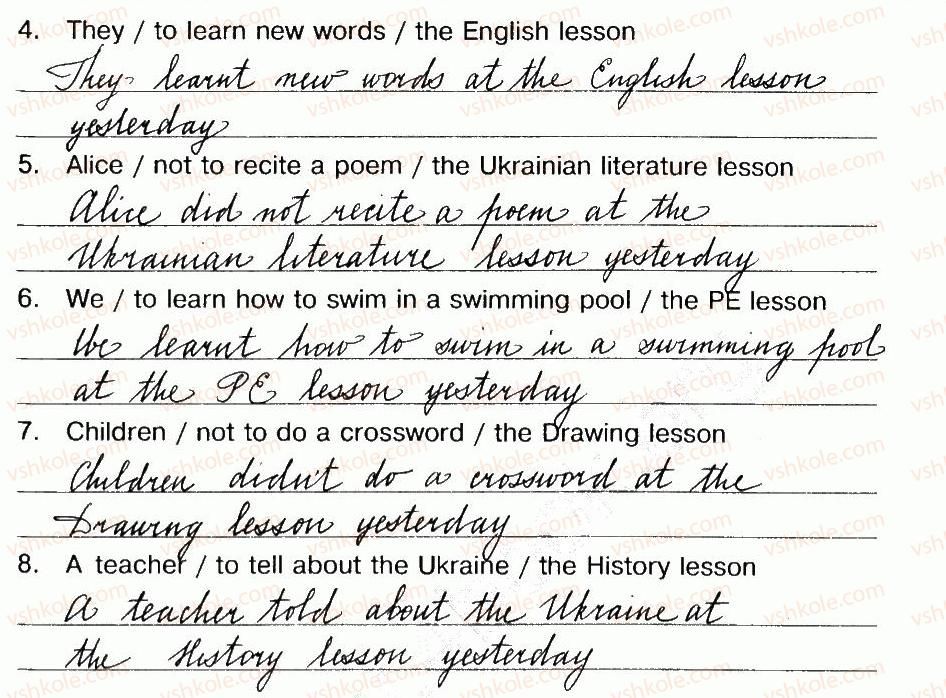 4. They / to learn new words / the English lesson
They learnt new words at the English lesson
yesterday
5. Alice / not to recite a poem / the Ukrainian literature lesson
Alice did not recite a poem at the
Ukrainian literature lesson yesterday
6. We / to learn how to swim in a swimming pool / the PE lesson
We learnt how to swim in a swimming pool
at the PE lesson yesterday
7. Children / not to do a crossword / the Drawing lesson
Children didn't do a crossword at the
Drawing lesson yesterday
8. A teacher / to tell about the Ukraine / the History lesson
A teacher told about the Ukraine at
the History lesson yesterday
vshkole.com